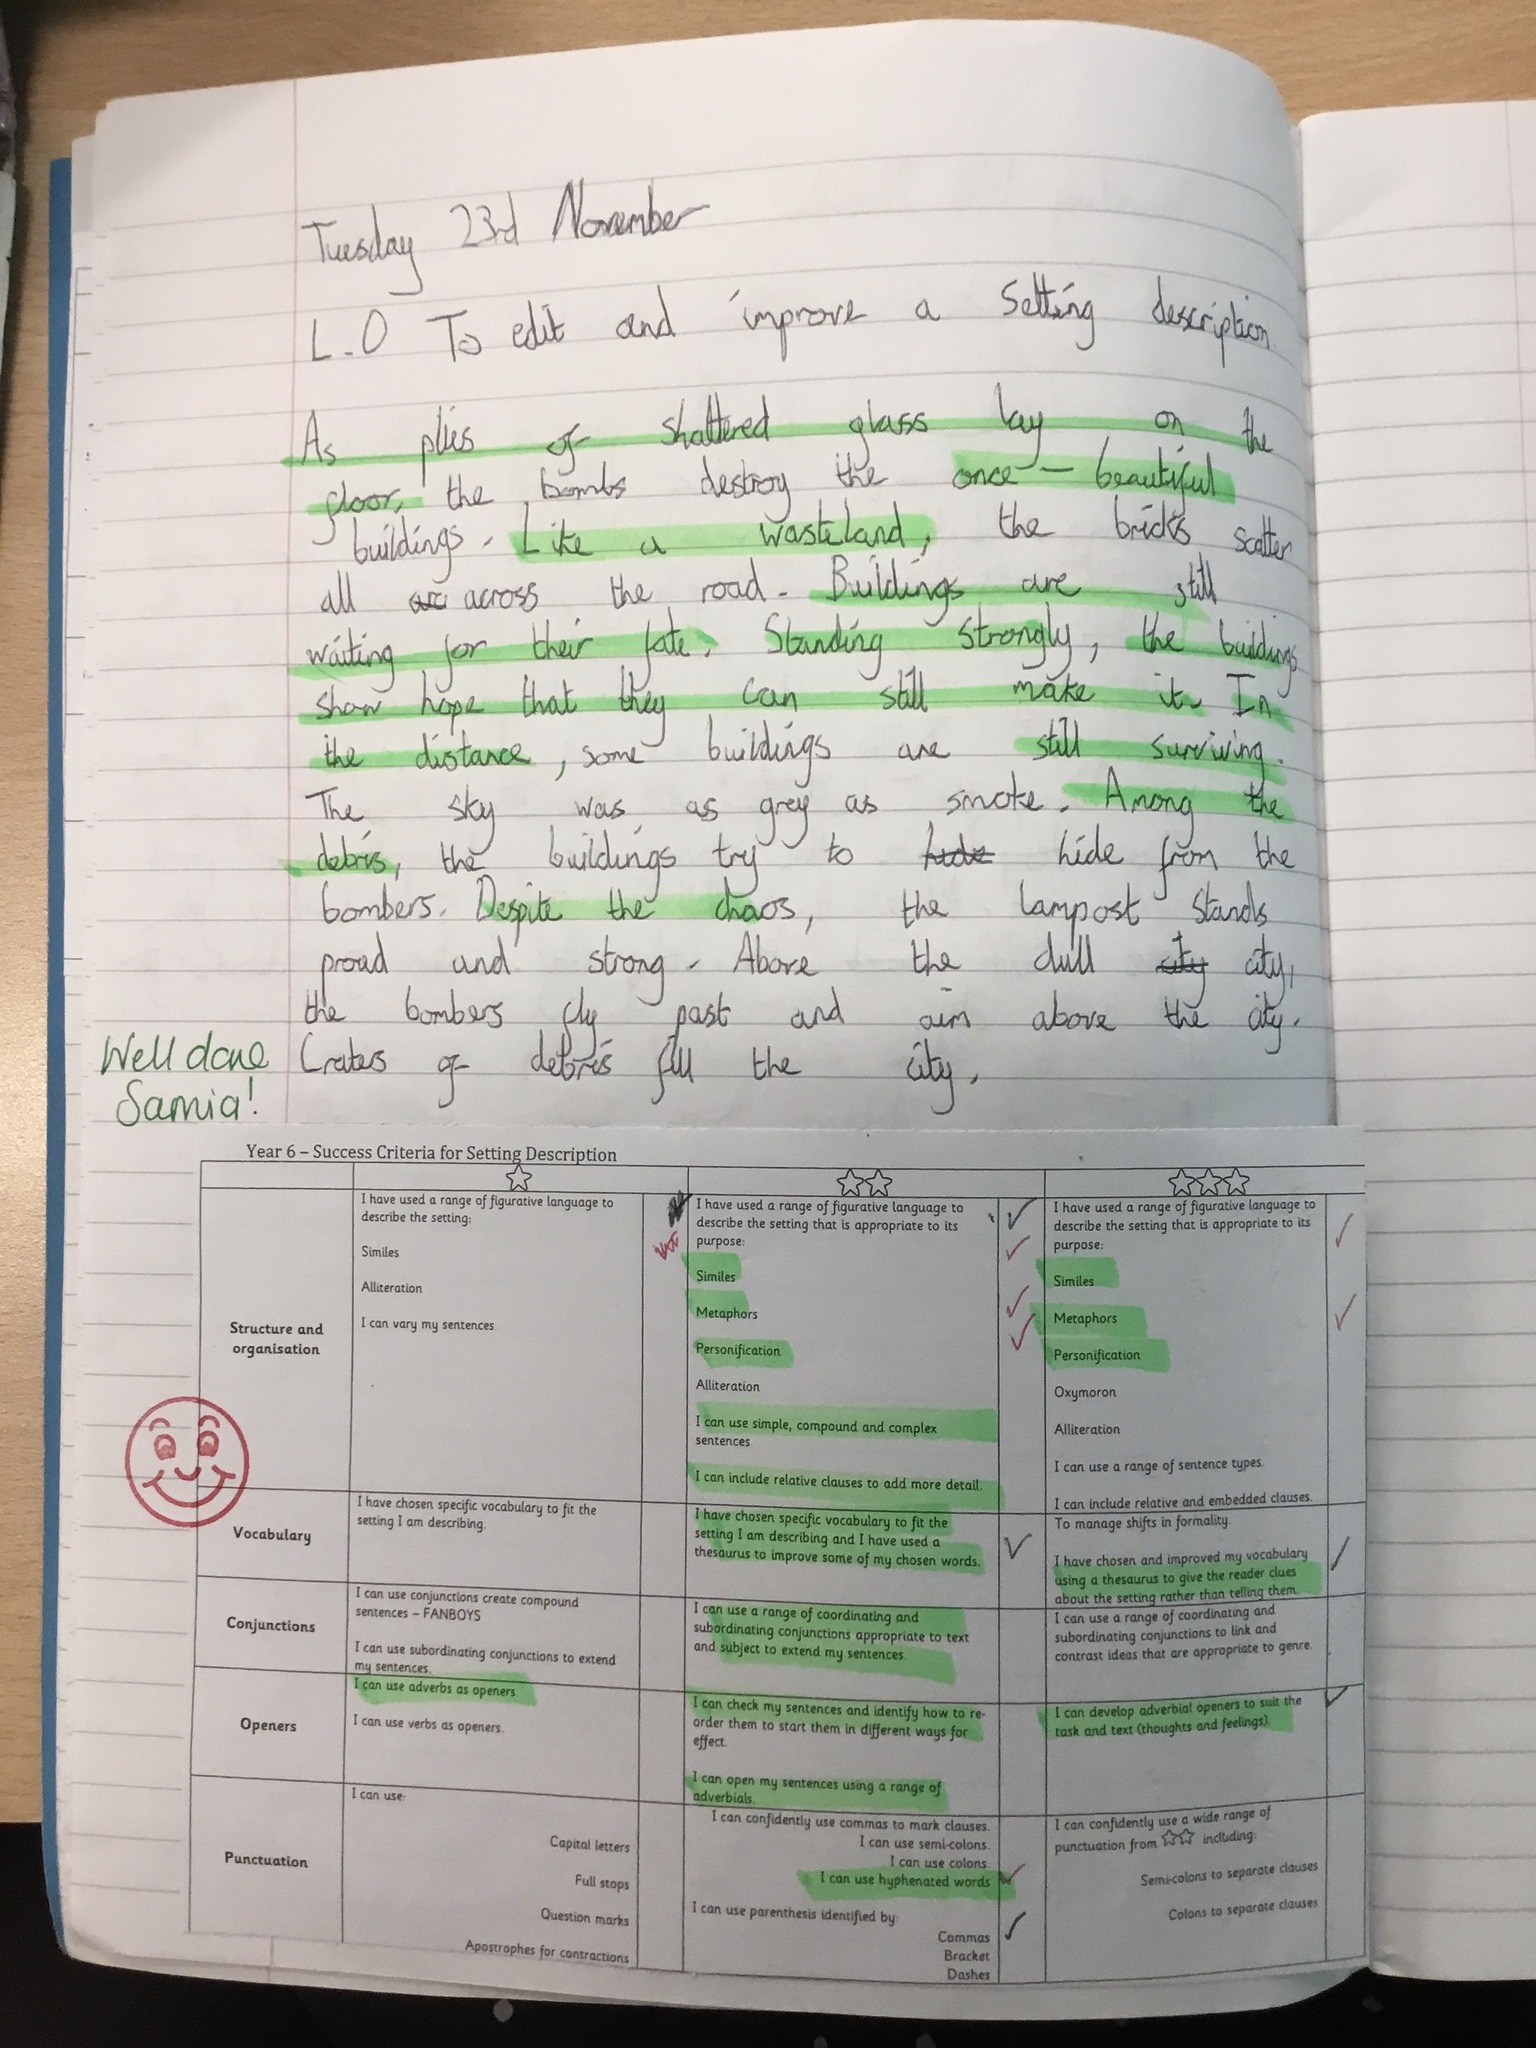 Tuesday 23rd November
L.O To edit and improve a setting description.
As plies of shattered glass lay on the
floor, the bombs destroy the once-beautiful
buildings. Like a wasteland, the bricks scatter
all across the road. Buildings are still
waiting for their fate. Standing strongly, the buildings
show hope that they can still make it. In
the distance, some buildings are still surviving.
The sky was as grey as smoke. Among the
debris, the buildings try to hide hide from the
bombers. Despite the chaos, the lampost stands
proud and strong. Above the dull city city,
the bombers fly past and aim above the city.
Craters of debris fill the city.
Well done
Samia!
Year 6 – Success Criteria for Setting Description
Structure and
organisation
I have used a range of figurative language to
describe the setting:
Similes
Alliteration
I can vary my sentences.
I have used a range of figurative language to
describe the setting that is appropriate to its
purpose:
Similes
Metaphors
Personification
Alliteration
I can use simple, compound and complex
sentences.
I can include relative clauses to add more detail.
I have used a range of figurative language to
describe the setting that is appropriate to its
purpose:
Similes
Metaphors
Personification
Oxymoron
Alliteration
I can use a range of sentence types.
I can include relative and embedded clauses.
Vocabulary
I have chosen specific vocabulary to fit the
setting I am describing.
I have chosen specific vocabulary to fit the
setting I am describing and I have used a
thesaurus to improve some of my chosen words.
To manage shifts in formality.
I have chosen and improved my vocabulary
using a thesaurus to give the reader clues
about the setting rather than telling them.
Conjunctions
I can use conjunctions create compound
sentences – FANBOYS
I can use subordinating conjunctions to extend
my sentences.
I can use a range of coordinating and
subordinating conjunctions appropriate to text
and subject to extend my sentences.
I can use a range of coordinating and
subordinating conjunctions to link and
contrast ideas that are appropriate to genre.
Openers
I can use adverbs as openers.
I can use verbs as openers.
I can check my sentences and identify how to re-
order them to start them in different ways for
effect.
I can open my sentences using a range of
adverbials.
I can develop adverbial openers to suit the
task and text (thoughts and feelings).
Punctuation
I can use:
Capital letters
Full stops
Question marks
Apostrophes for contractions
I can confidently use commas to mark clauses.
I can use semi-colons.
I can use colons.
I can use hyphenated words
I can use parenthesis identified by:
Commas
Bracket
Dashes
I can confidently use a wide range of
punctuation from ☆☆ including:
Semi-colons to separate clauses
Colons to separate clauses